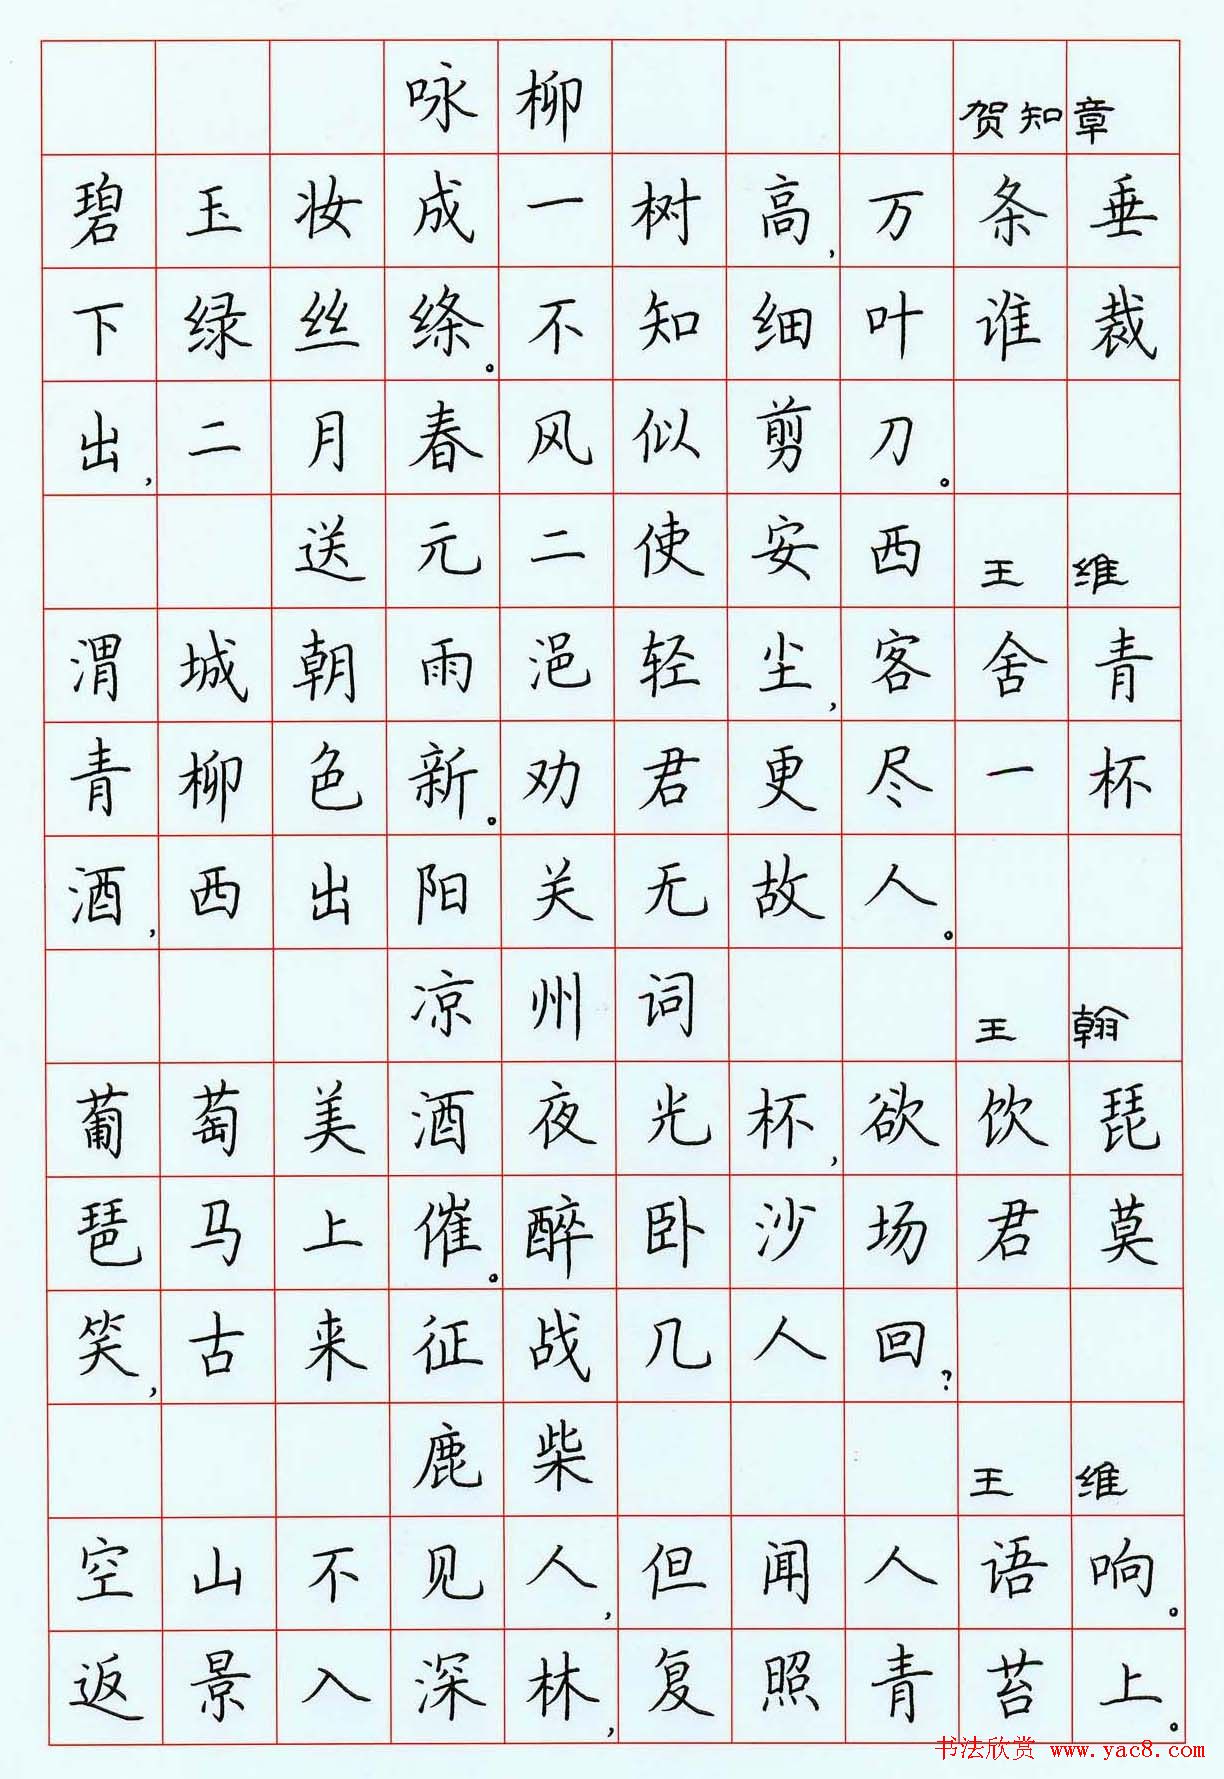 咏柳 贺知章
碧玉妆成一树高,万条垂
下绿丝绦。不知细叶谁裁
出,二月春风似剪刀。
送元二使安西 王维
渭城朝雨浥轻尘,客舍青
青柳色新。劝君更尽一杯
酒,西出阳关无故人。
凉州词 王翰
葡萄美酒夜光杯,欲饮琵
琶马上催。醉卧沙场君莫
笑,古来征战几人回?
鹿柴 王维
空山不见人,但闻人语响。
返景入深林,复照青苔上。
书法欣赏 www.yac8.com